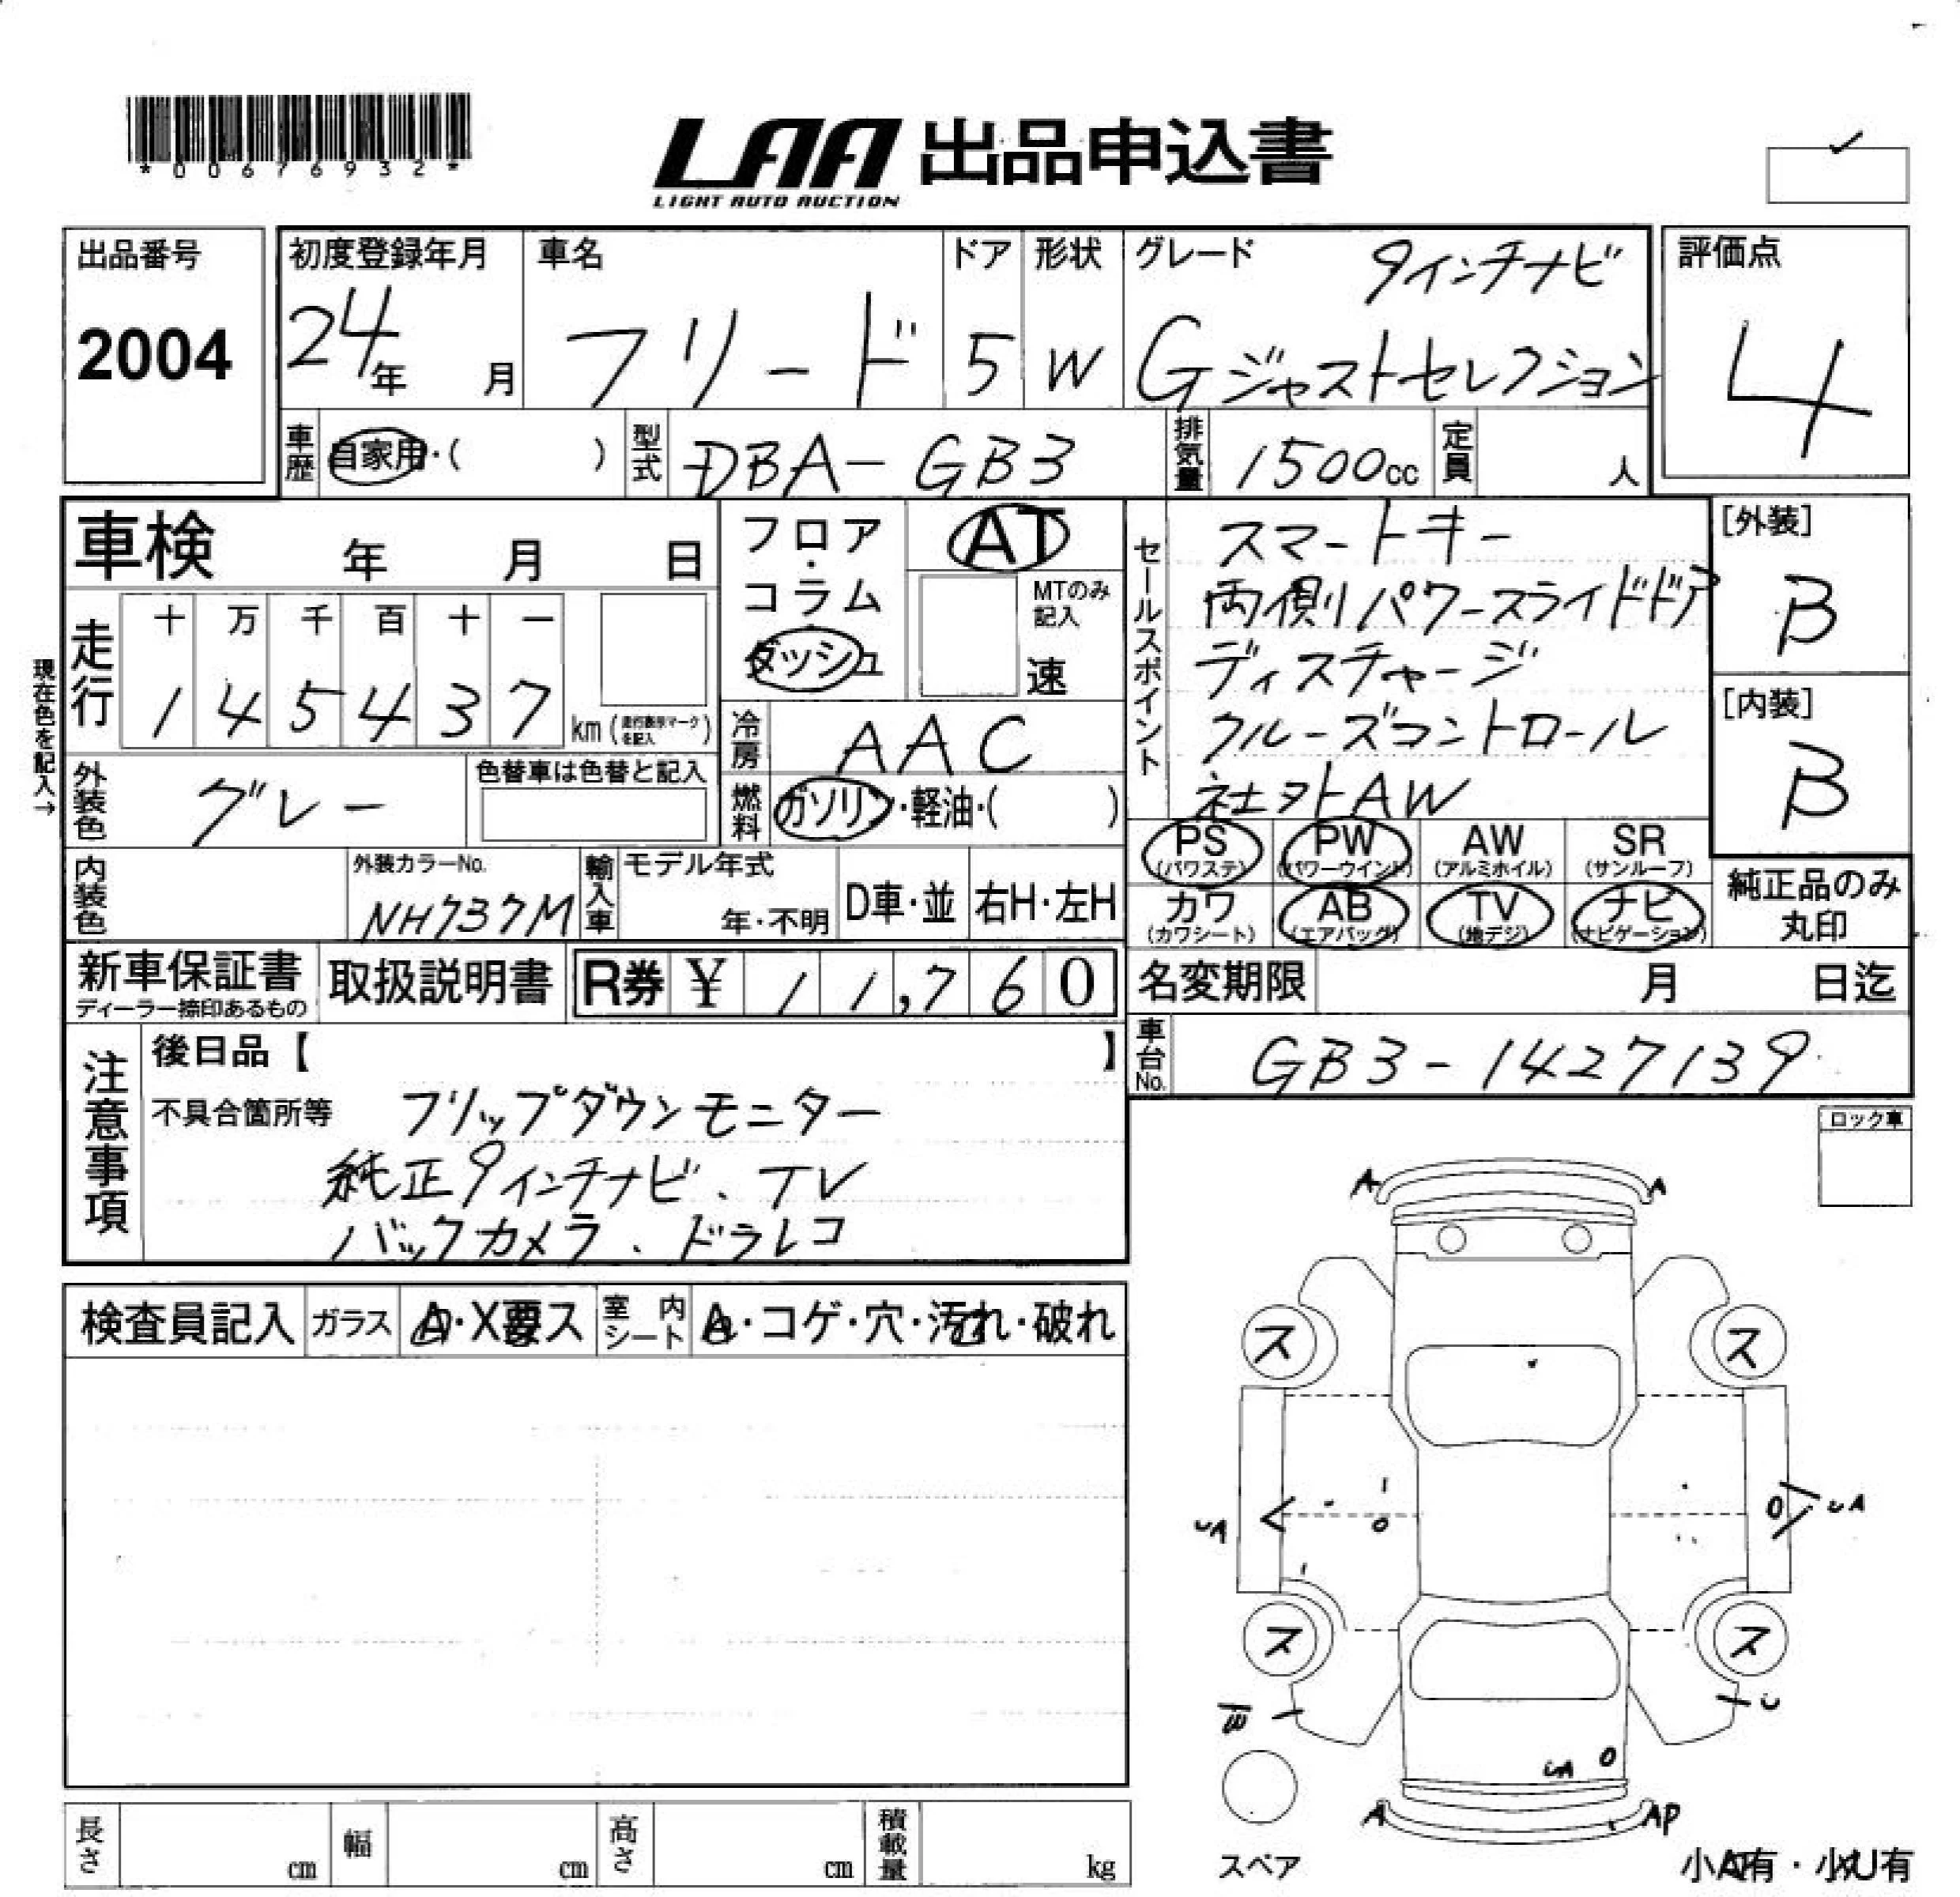 *00676932*
LAA 出品申込書
LIGHT AUTO AUCTION
出品番号
2004
初度登録年月
24年 月
車名
フリード
ドア
5
形状
W
グレード
9インチナビ
Gジャストセレクション
評価点
4
車歴 自家用・( )
型式 DBA-GB3
排気量 1500cc
定員 人
車検 年 月 日
フロア・コラム
ダッシュ
AT
MTのみ記入
速
セールスポイント
スマートキー
両側パワースライドドア
ディスチャージ
クルーズコントロール
社外AW
[外装]
B
[内装]
B
現在色を記入→
走行
十 万 千 百 十 一
1 4 5 4 3 7 km (走行表示マークを記入)
冷房 AAC
外装色 グレー
色替車は色替と記入
燃料 ガソリン・軽油・( )
PS (パワステ) PW (パワーウインド) AW (アルミホイル) SR (サンルーフ)
カワ (カワシート) AB (エアバッグ) TV (地デジ) ナビ (ナビゲーション)
純正品のみ
丸印
内装色
外装カラーNo.
NH737M
輸入車
モデル年式
年・不明
D車・並
右H・左H
新車保証書
ディーラー捺印あるもの
取扱説明書
R券 ¥ 11,760
名変期限 月 日迄
車台No. GB3-1427139
注意事項
後日品【 】
不具合箇所等 フリップダウンモニター
純正9インチナビ、TV
バックカメラ、ドラレコ
ロック車
A A
検査員記入 ガラス A・X要ス 室内シート A・コゲ・穴・汚れ・破れ
ス ス
UA UA
ス ス
U
UA
A AP
スペア
長さ cm 幅 cm 高さ cm 積載量 kg
小A有・小U有